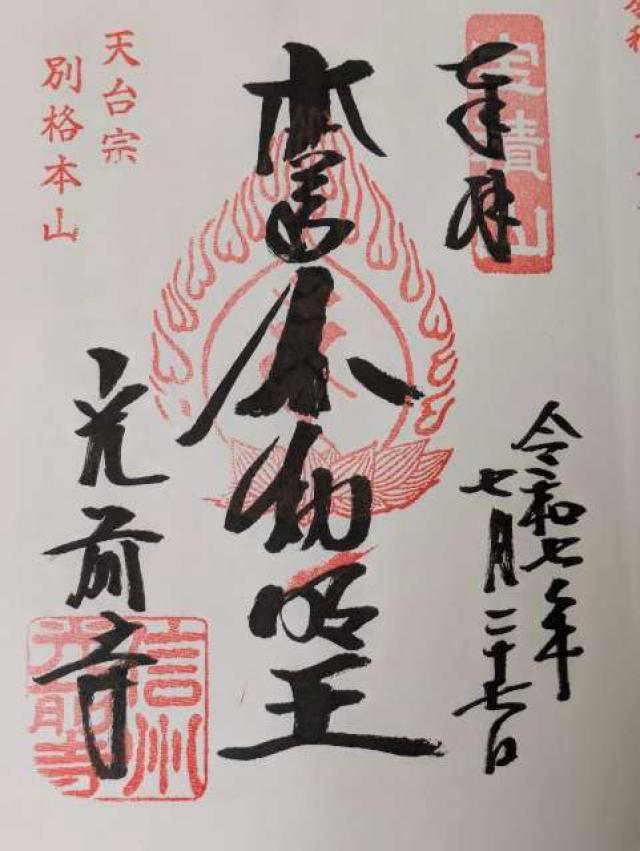 奉拝
宝積山
令和七年
七月二十七日
本尊
不動明王
天台宗
別格本山
光前寺
信州
光前寺